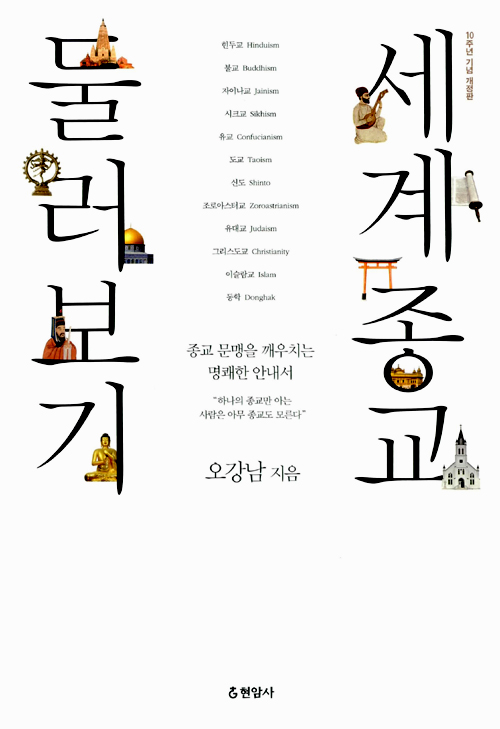 세계종교
둘러보기
10주년 기념 개정판
힌두교 Hinduism
불교 Buddhism
자이나교 Jainism
시크교 Sikhism
유교 Confucianism
도교 Taoism
신도 Shinto
조로아스터교 Zoroastrianism
유대교 Judaism
그리스도교 Christianity
이슬람교 Islam
동학 Donghak
종교 문맹을 깨우치는
명쾌한 안내서
“하나의 종교만 아는
사람은 아무 종교도 모른다”
오강남 지음
현암사